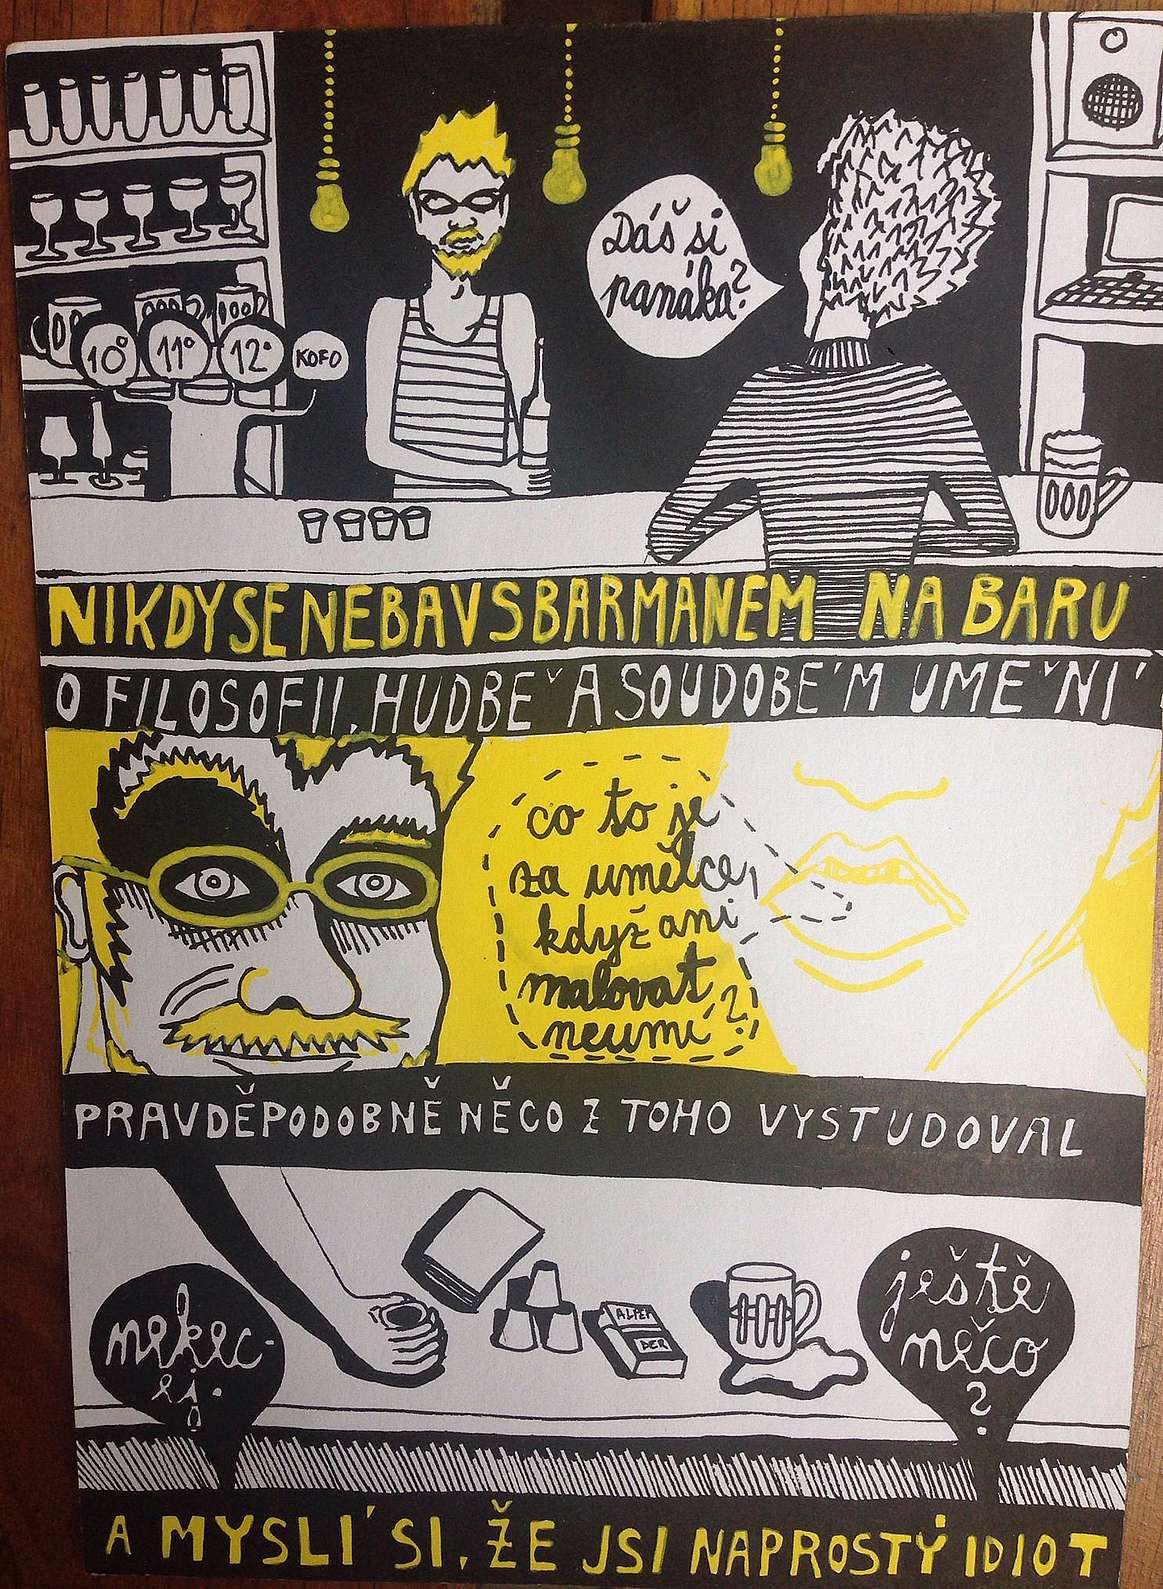 Dáš si
panáka?
10° 11° 12° KOFO
NIKDY SE NEBAV S BARMANEM NA BARU
O FILOSOFII, HUDBĚ A SOUDOBÉM UMĚNÍ
co to je
za umělce,
když ani
malovat
neumí?
PRAVDĚPODOBNĚ NĚCO Z TOHO VYSTUDOVAL
nekec-
ej.
ještě
něco
?
A MYSLÍ SI, ŽE JSI NAPROSTÝ IDIOT